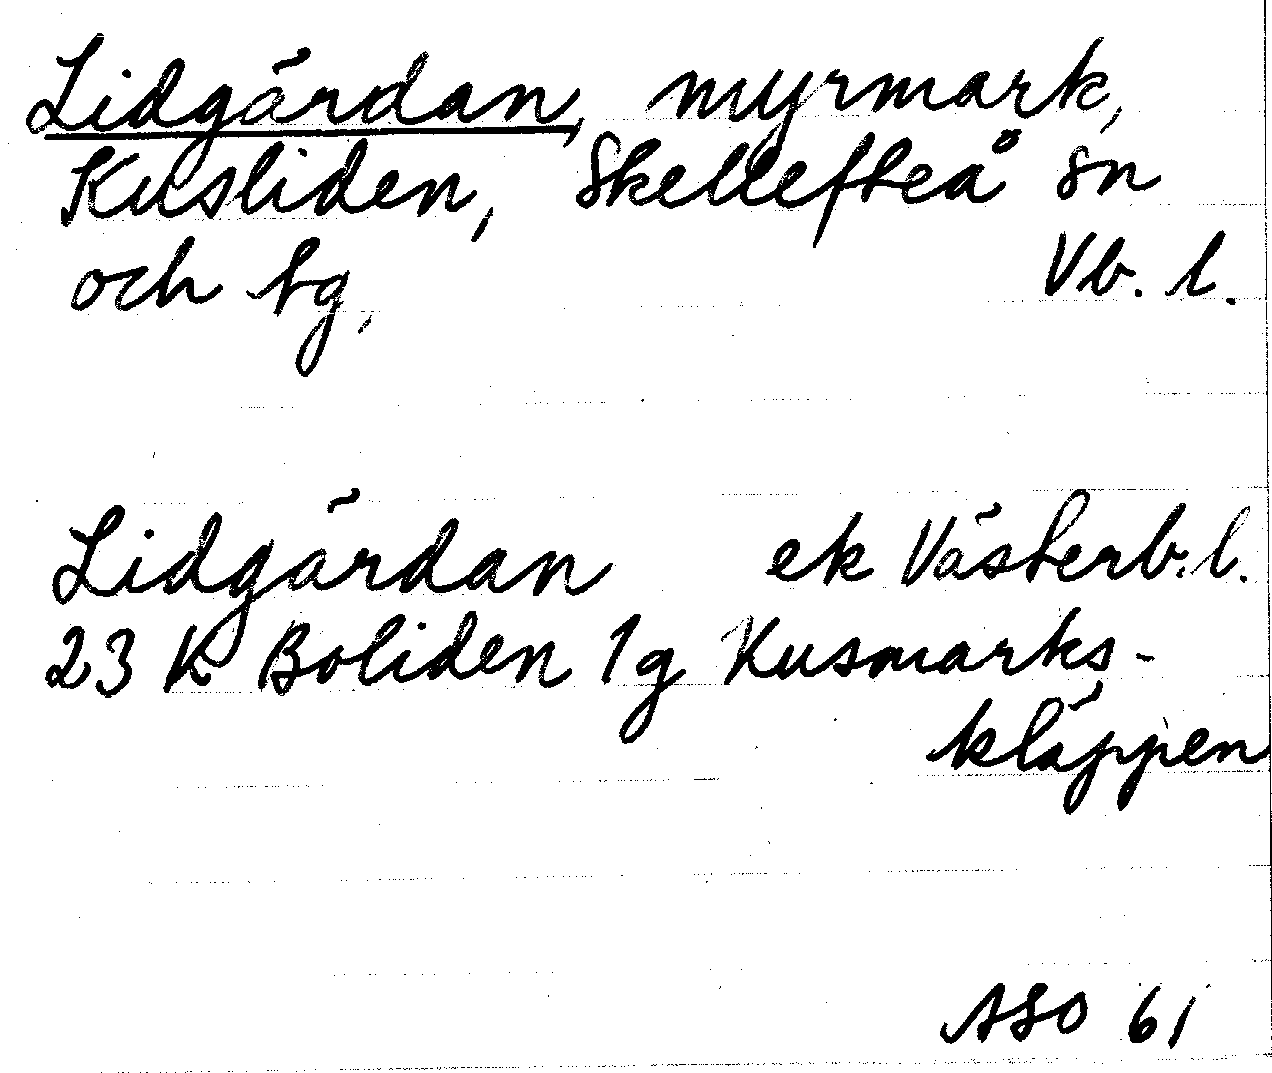 Lidgärdan, myrmark,
Kusliden, Skellefteå sn
och tg, Vb. l.
Lidgärdan ek Västerb. l.
23 K Boliden 1g Kusmarks-
kläppen
ASO 61